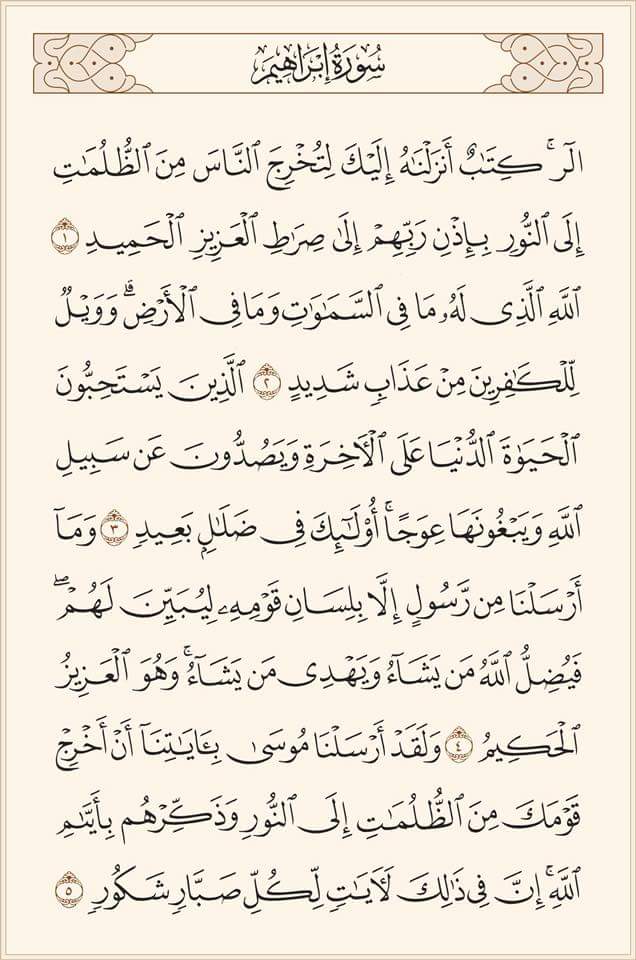 سُورَةُ إِبْرَاهِيمَ
الٓر ۚ كِتَٰبٌ أَنزَلْنَٰهُ إِلَيْكَ لِتُخْرِجَ ٱلنَّاسَ مِنَ ٱلظُّلُمَٰتِ
إِلَى ٱلنُّورِ بِإِذْنِ رَبِّهِمْ إِلَىٰ صِرَٰطِ ٱلْعَزِيزِ ٱلْحَمِيدِ ١
ٱللَّهِ ٱلَّذِى لَهُۥ مَا فِى ٱلسَّمَٰوَٰتِ وَمَا فِى ٱلْأَرْضِ ۗ وَوَيْلٌ
لِّلْكَٰفِرِينَ مِنْ عَذَابٍ شَدِيدٍ ٢ ٱلَّذِينَ يَسْتَحِبُّونَ
ٱلْحَيَوٰةَ ٱلدُّنْيَا عَلَى ٱلْءَاخِرَةِ وَيَصُدُّونَ عَن سَبِيلِ
ٱللَّهِ وَيَبْغُونَهَا عِوَجًا ۚ أُو۟لَٰٓئِكَ فِى ضَلَٰلٍۭ بَعِيدٍ ٣ وَمَآ
أَرْسَلْنَا مِن رَّسُولٍ إِلَّا بِلِسَانِ قَوْمِهِۦ لِيُبَيِّنَ لَهُمْ ۖ
فَيُضِلُّ ٱللَّهُ مَن يَشَآءُ وَيَهْدِى مَن يَشَآءُ ۚ وَهُوَ ٱلْعَزِيزُ
ٱلْحَكِيمُ ٤ وَلَقَدْ أَرْسَلْنَا مُوسَىٰ بِـَٔايَٰتِنَآ أَنْ أَخْرِجْ
قَوْمَكَ مِنَ ٱلظُّلُمَٰتِ إِلَى ٱلنُّورِ وَذَكِّرْهُم بِأَيَّىٰمِ
ٱللَّهِ ۚ إِنَّ فِى ذَٰلِكَ لَءَايَٰتٍ لِّكُلِّ صَبَّارٍ شَكُورٍ ٥